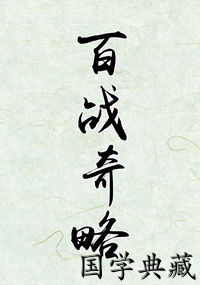 百战奇略
国学典藏